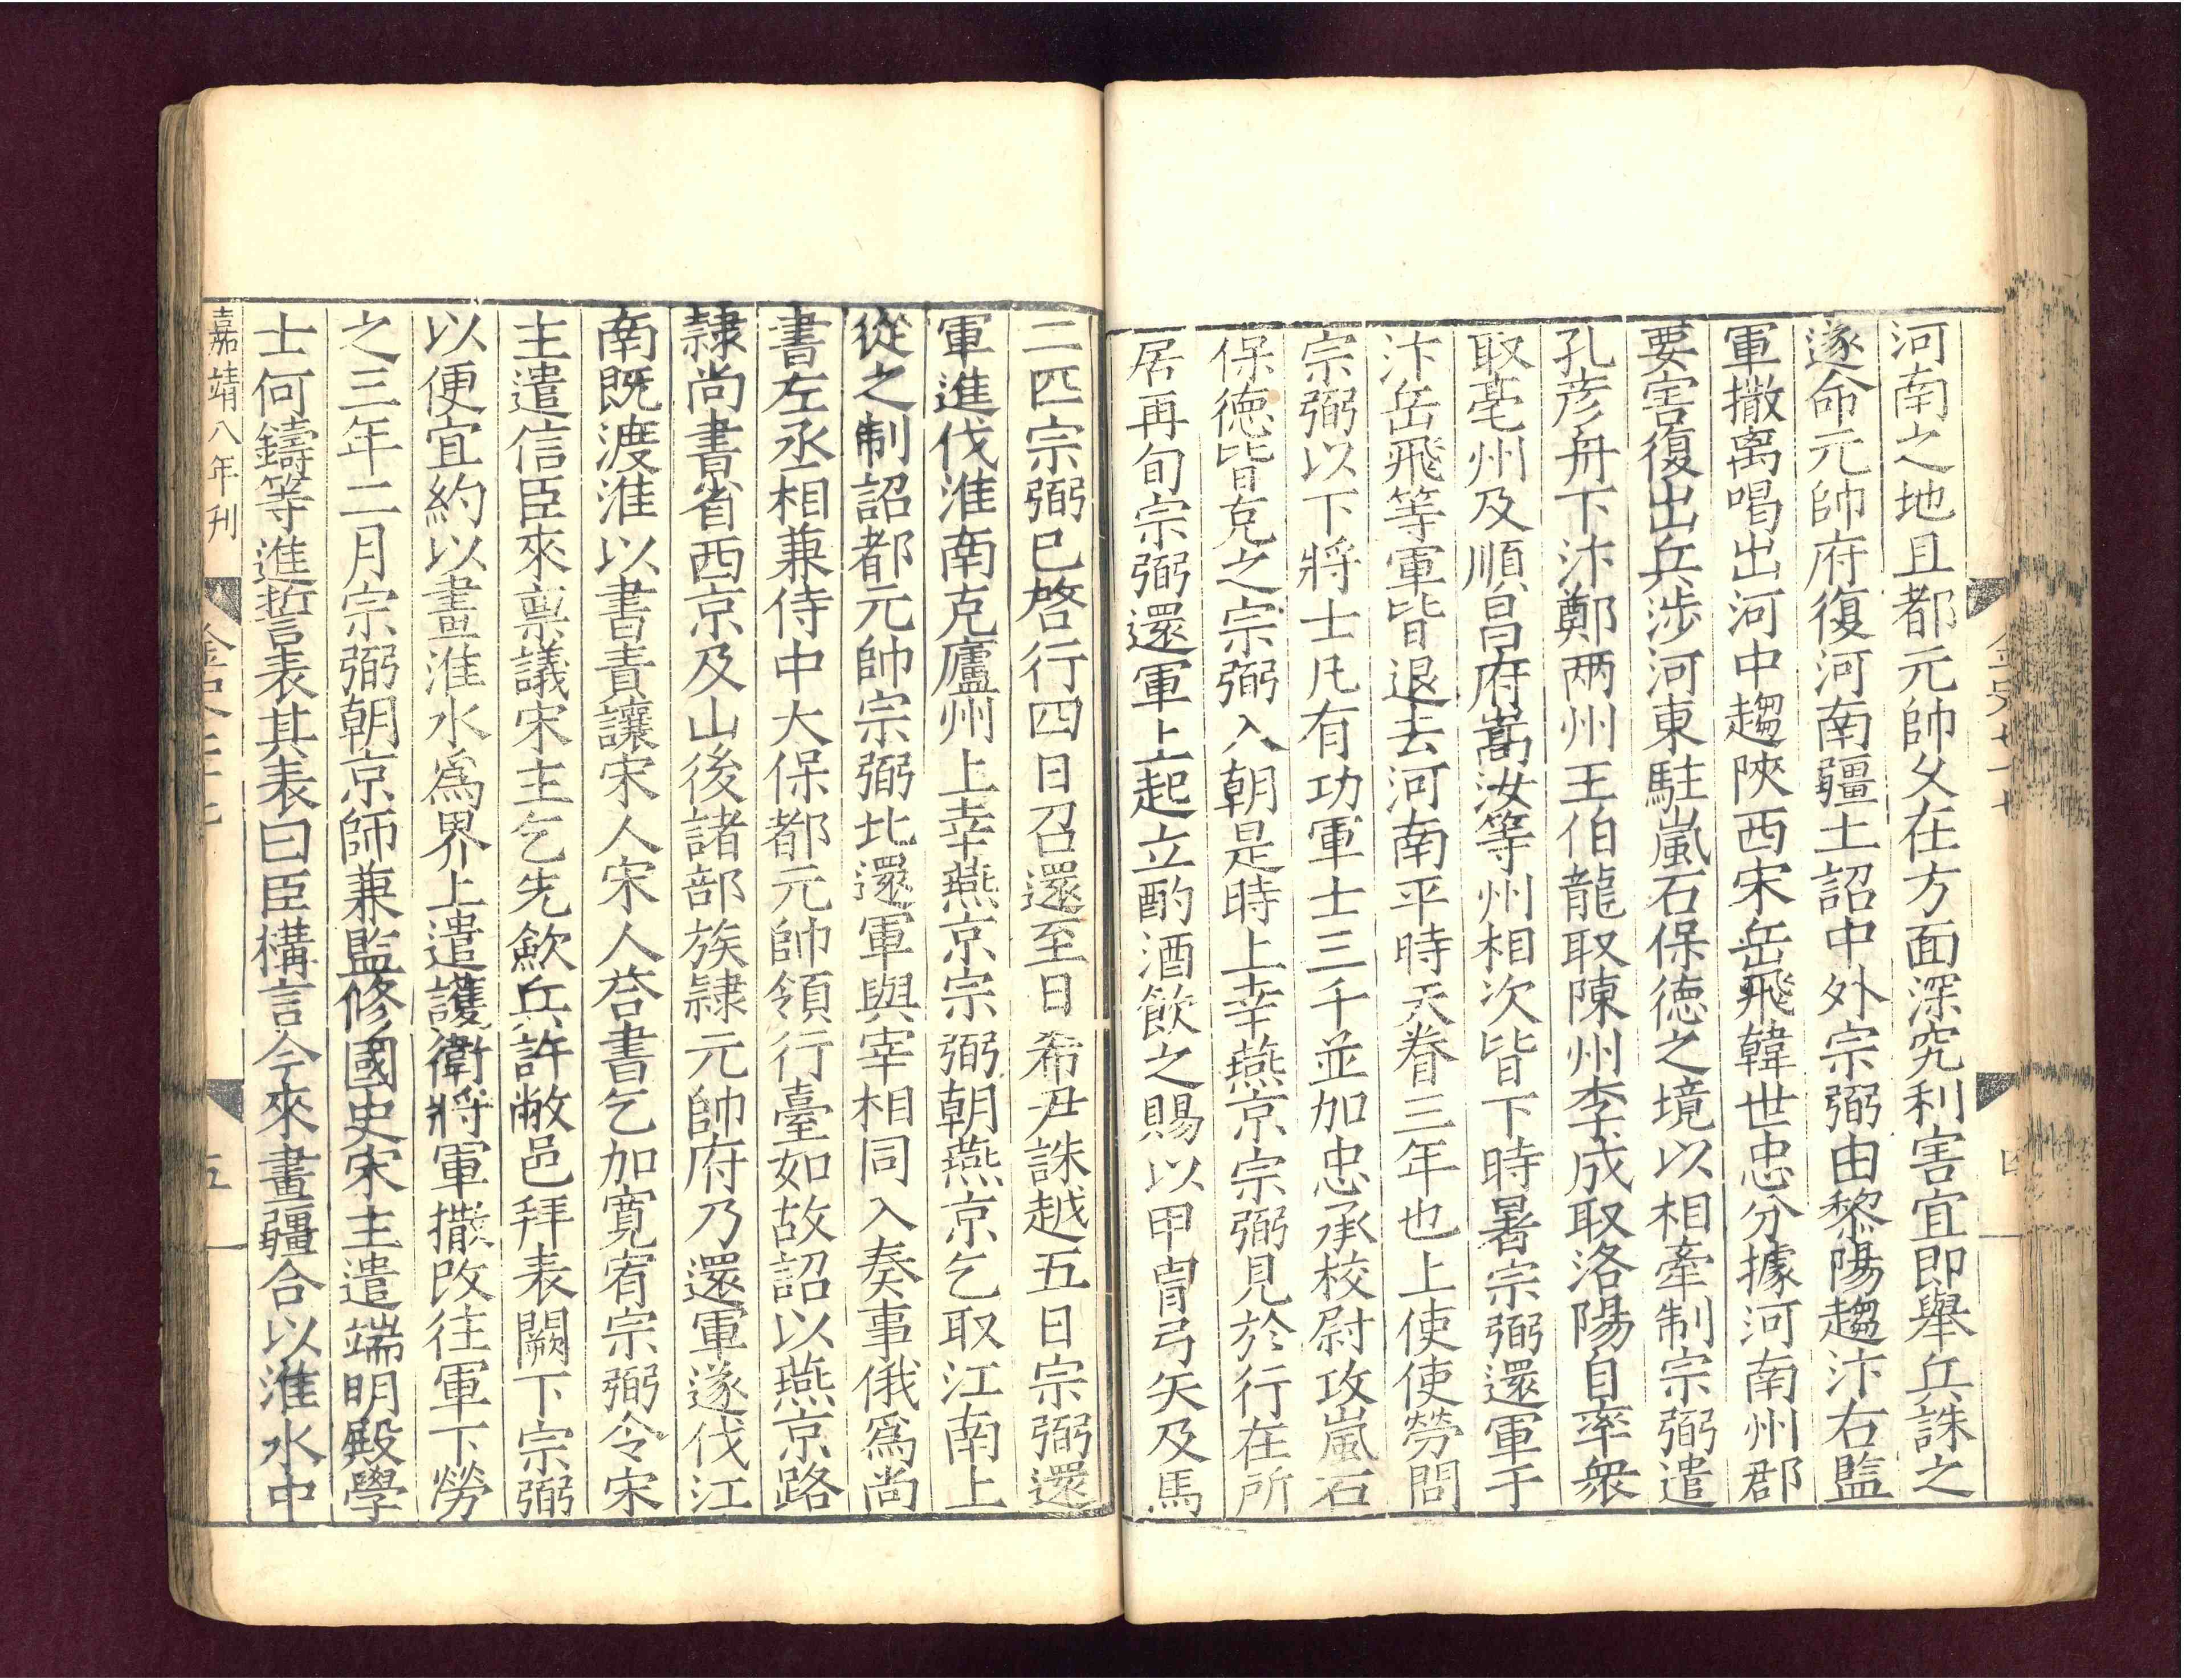 河南之地且都元帥久在方面深究利害宜即舉兵誅之
遂命元帥府復河南疆土詔中外宗弼由黎陽趨汴右監
軍撒离喝出河中趨陝西宋岳飛韓世忠分據河南州郡
要害復出兵涉河東駐嵐石保德之境以相牽制宗弼遣
孔彥舟下汴鄭两州王伯龍取陳州李成取洛陽自率衆
取亳州及順昌府嵩汝等州相次皆下時暑宗弼還軍于
汴岳飛等軍皆退去河南平時天眷三年也上使使勞問
宗弼以下將士凡有功軍士三千並加忠承校尉攻嵐石
保德皆克之宗弼入朝是時上幸燕京宗弼見於行在所
居再旬宗弼還軍上起立酌酒飲之賜以甲冑弓矢及馬
二匹宗弼已啓行四日召還至日希尹誅越五日宗弼還
軍進伐淮南克廬州上幸燕京宗弼朝燕京乞取江南上
從之制詔都元帥宗弼比還軍與宰相同入奏事俄爲尚
書左丞相兼侍中大保都元帥領行臺如故詔以燕京路
隷尚書省西京及山後諸部族隷元帥府乃還軍遂伐江
南既渡淮以書責讓宋人宋人荅書乞加寛宥宗弼令宋
主遣信臣來稟議宋主乞先歛兵許敝邑拜表闕下宗弼
以便宜約以畫淮水爲界上遣護衛將軍撒改往軍下勞
之三年二月宗弼朝京師兼監修國史宋主遣端明殿學
士何鑄等進誓表其表曰臣構言今來畫疆合以淮水中
嘉靖八年刊
五